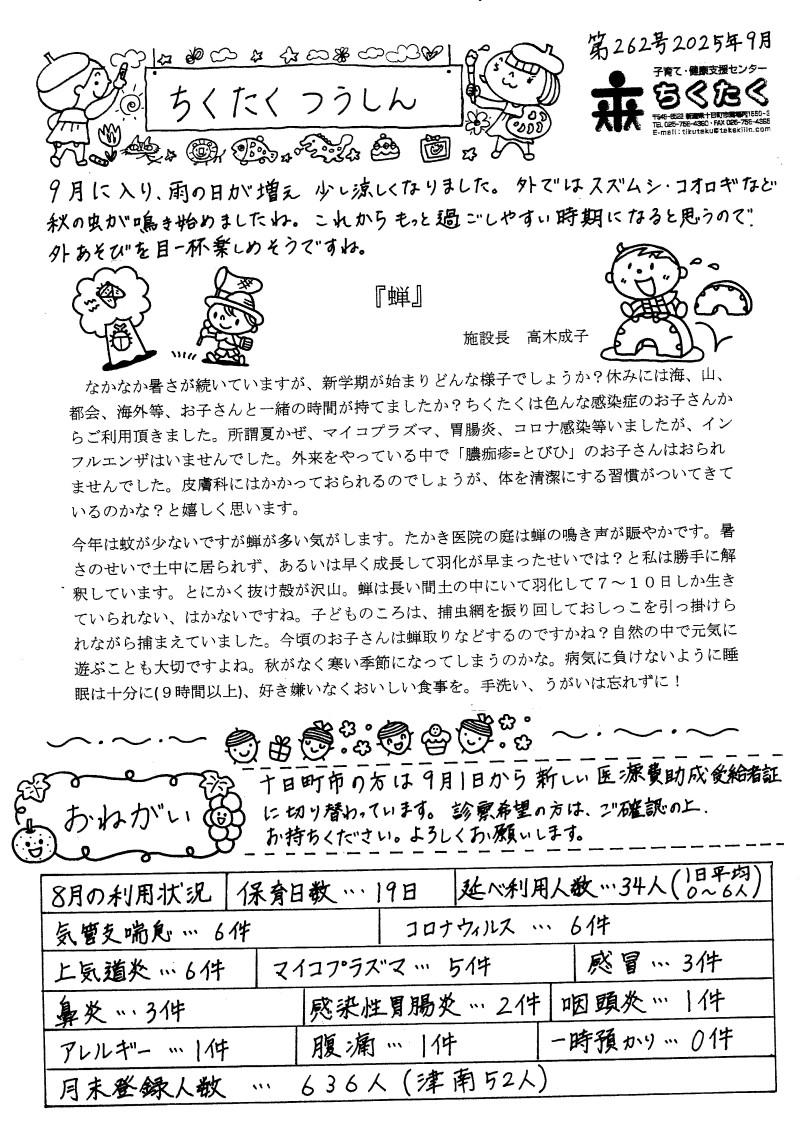 第262号2025年9月
ちくたくつうしん
子育て・健康支援センター
ちくたく
9月に入り、雨の日が増え 少し涼しくなりました。外ではスズムシ・コオロギなど
秋の虫が鳴き始めましたね。これからもっと過ごしやすい時期になると思うので、
外あそびを目一杯楽しめそうですね。
『蝉』
施設長 高木成子
なかなか暑さが続いていますが、新学期が始まりどんな様子でしょうか？休みには海、山、
都会、海外等、お子さんと一緒の時間が持てましたか？ちくたくは色んな感染症のお子さんか
らご利用頂きました。所謂夏かぜ、マイコプラズマ、胃腸炎、コロナ感染等いましたが、イン
フルエンザはいませんでした。外来をやっている中で「膿痂疹=とびひ」のお子さんはおられ
ませんでした。皮膚科にはかかっておられるのでしょうが、体を清潔にする習慣がついてきて
いるのかな？と嬉しく思います。
今年は蚊が少ないですが蝉が多い気がします。たかき医院の庭は蝉の鳴き声が賑やかです。暑
さのせいで土中に居られず、あるいは早く成長して羽化が早まったせいでは？と私は勝手に解
釈しています。とにかく抜け殻が沢山。蝉は長い間土の中にいて羽化して７～１０日しか生き
ていられない、はかないですね。子どものころは、捕虫網を振り回しておしっこを引っ掛けら
れながら捕まえていました。今頃のお子さんは蝉取りなどするのですかね？自然の中で元気に
遊ぶことも大切ですよね。秋がなく寒い季節になってしまうのかな。病気に負けないように睡
眠は十分に(９時間以上)、好き嫌いなくおいしい食事を。手洗い、うがいは忘れずに！
おねがい
十日町市の方は9月1日から新しい医療費助成受給者証
に切り替わっています。診察希望の方は、ご確認の上、
お持ちください。よろしくお願いします。
8月の利用状況 保育日数…19日 延べ利用人数…34人(1日平均 0～6人)
気管支喘息…6件 コロナウィルス…6件
上気道炎…6件 マイコプラズマ…5件 感冒…3件
鼻炎…3件 感染性胃腸炎…2件 咽頭炎…1件
アレルギー…1件 腹痛…1件 一時預かり…0件
月末登録人数 … 636人(津南52人)